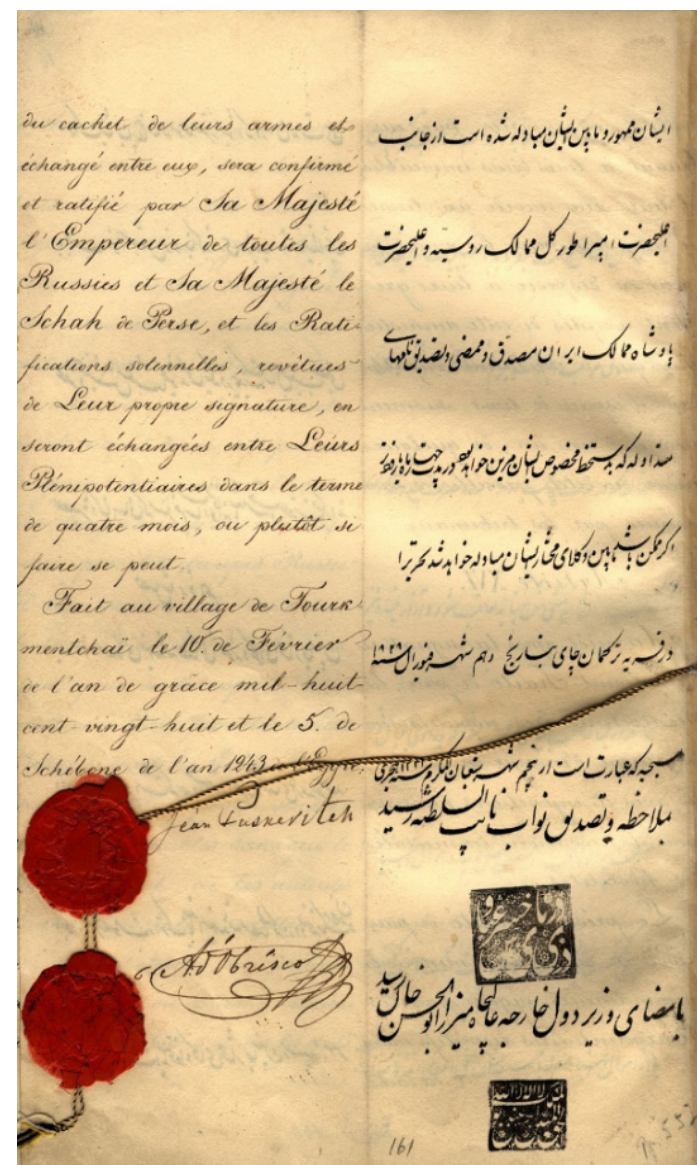 du cachet de leurs armes et
échangé entre eux, sera confirmé
et ratifié par Sa Majesté
l'Empereur de toutes les
Russies et Sa Majesté le
Schah de Perse, et les Rati-
fications solennelles, revêtues
de Leur propre signature, en
seront échangées entre Leurs
Plénipotentiaires dans le terme
de quatre mois, ou plutôt si
faire se peut.
Fait au village de Tourk-
mentchaï le 10. de Février
de l'an de grace mil-huit-
cent-vingt-huit et le 5. de
Schébone de l'an 1243 de l'Egyre.
Jean Paskevitch
A d'Obrescoff
ایشان ممهور و مابین ایشان مبادله شده است از جانب
اعلیحضرت امپراطور کل ممالک روسیه و اعلیحضرت
پادشاه ممالک ایران مصدق و ممضی و تصدیق نامهای
متداوله که بدستخط مخصوص ایشان مزین خواهد بود در مدت چهار ماه یا زودتر
اگر ممکن باشد مابین وکلای مختار ایشان مبادله خواهد شد تحریرا
در قریه ترکمان چای بتاریخ دهم شهر فیورال سنه ۱۸۲۸
مسیحیه که عبارت است از پنجم شهر شعبان المکرم سنه ۱۲۴۳ هجری
بملاحظه و تصدیق نواب نایب السلطنه رسید
بامضای وزیر دول خارجه عالیجاه میرزا ابوالحسن خان رسید
161